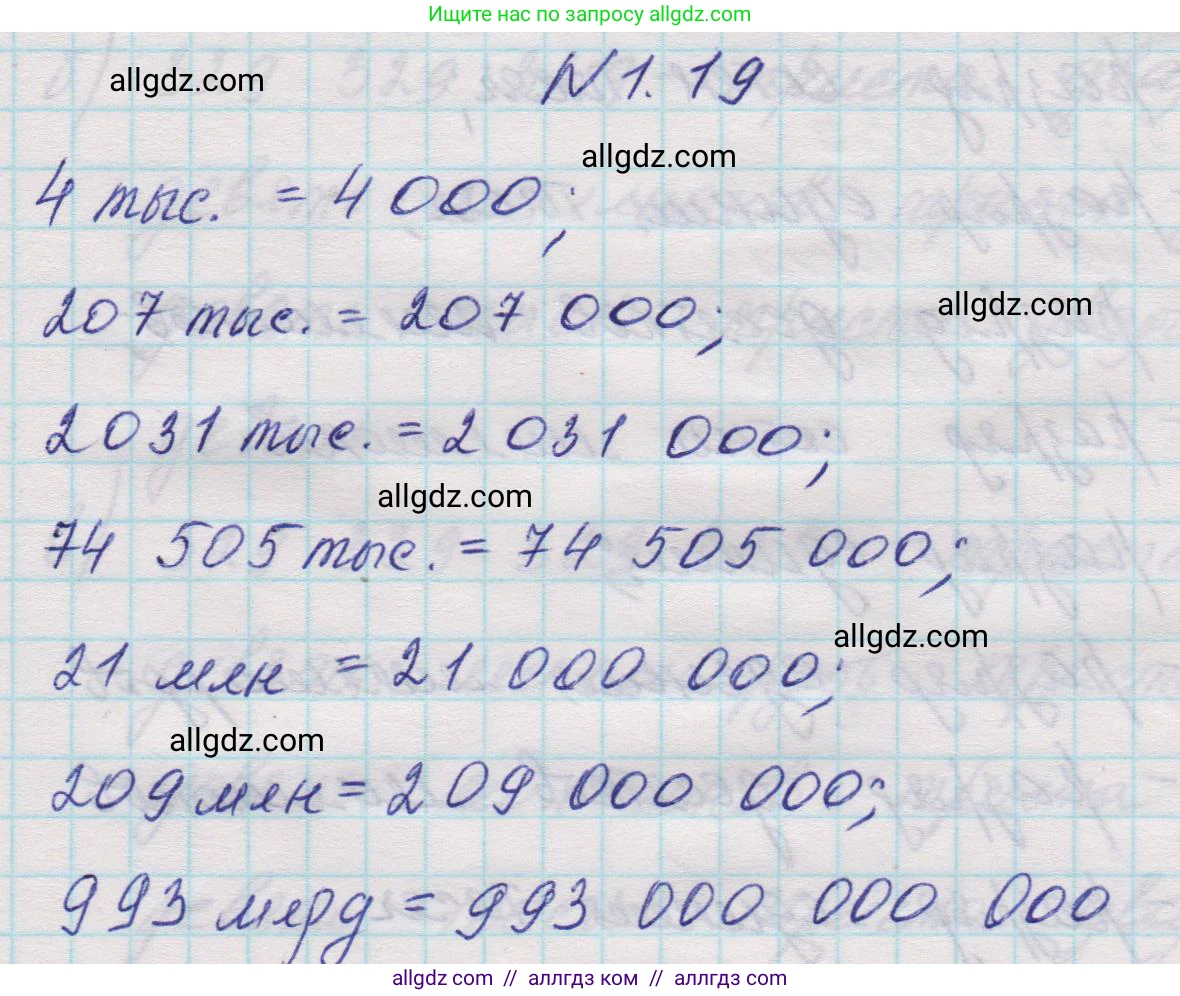 Ищите нас по запросу allgdz.com
allgdz.com
N 1. 19
allgdz.com
4 тыс. = 4 000;
207 тыс. = 207 000;
allgdz.com
2 031 тыс. = 2 031 000;
allgdz.com
74 505 тыс. = 74 505 000;
allgdz.com
21 млн = 21 000 000;
allgdz.com
209 млн = 209 000 000;
993 млрд = 993 000 000 000
allgdz.com // аллгдз ком // аллгдз.com